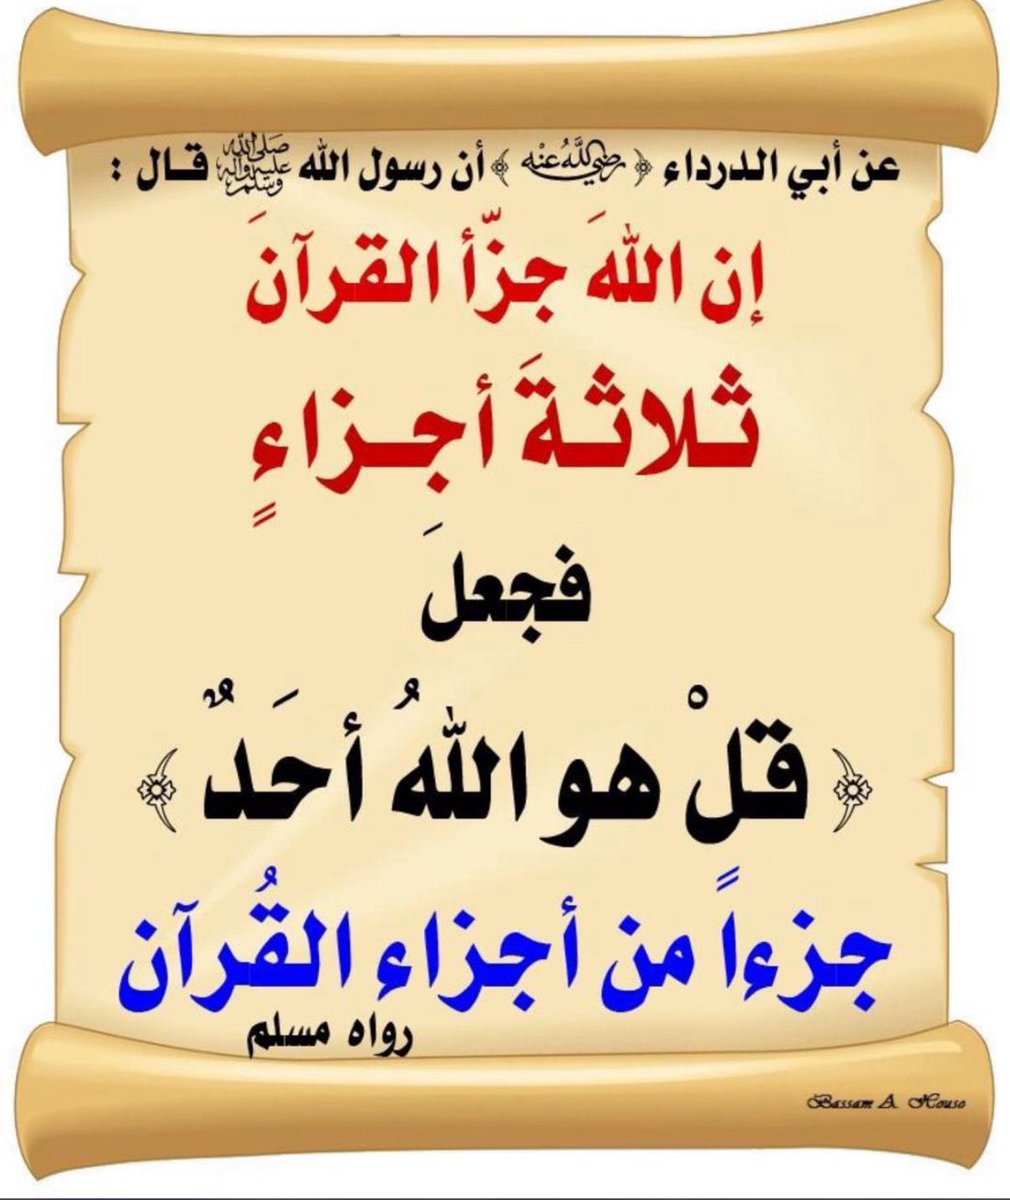 عن أبي الدرداء ﴿ رضي الله عنه ﴾ أن رسول الله ﷺ قـال :
إن اللهَ جزّأ القرآنَ
ثـلاثـةَ أجـزاءٍ
فجعلَ
﴿ قلْ هو اللهُ أحَدٌ ﴾
جزءاً من أجزاء القُرآن
رواه مسلم
Bassam A. Houso